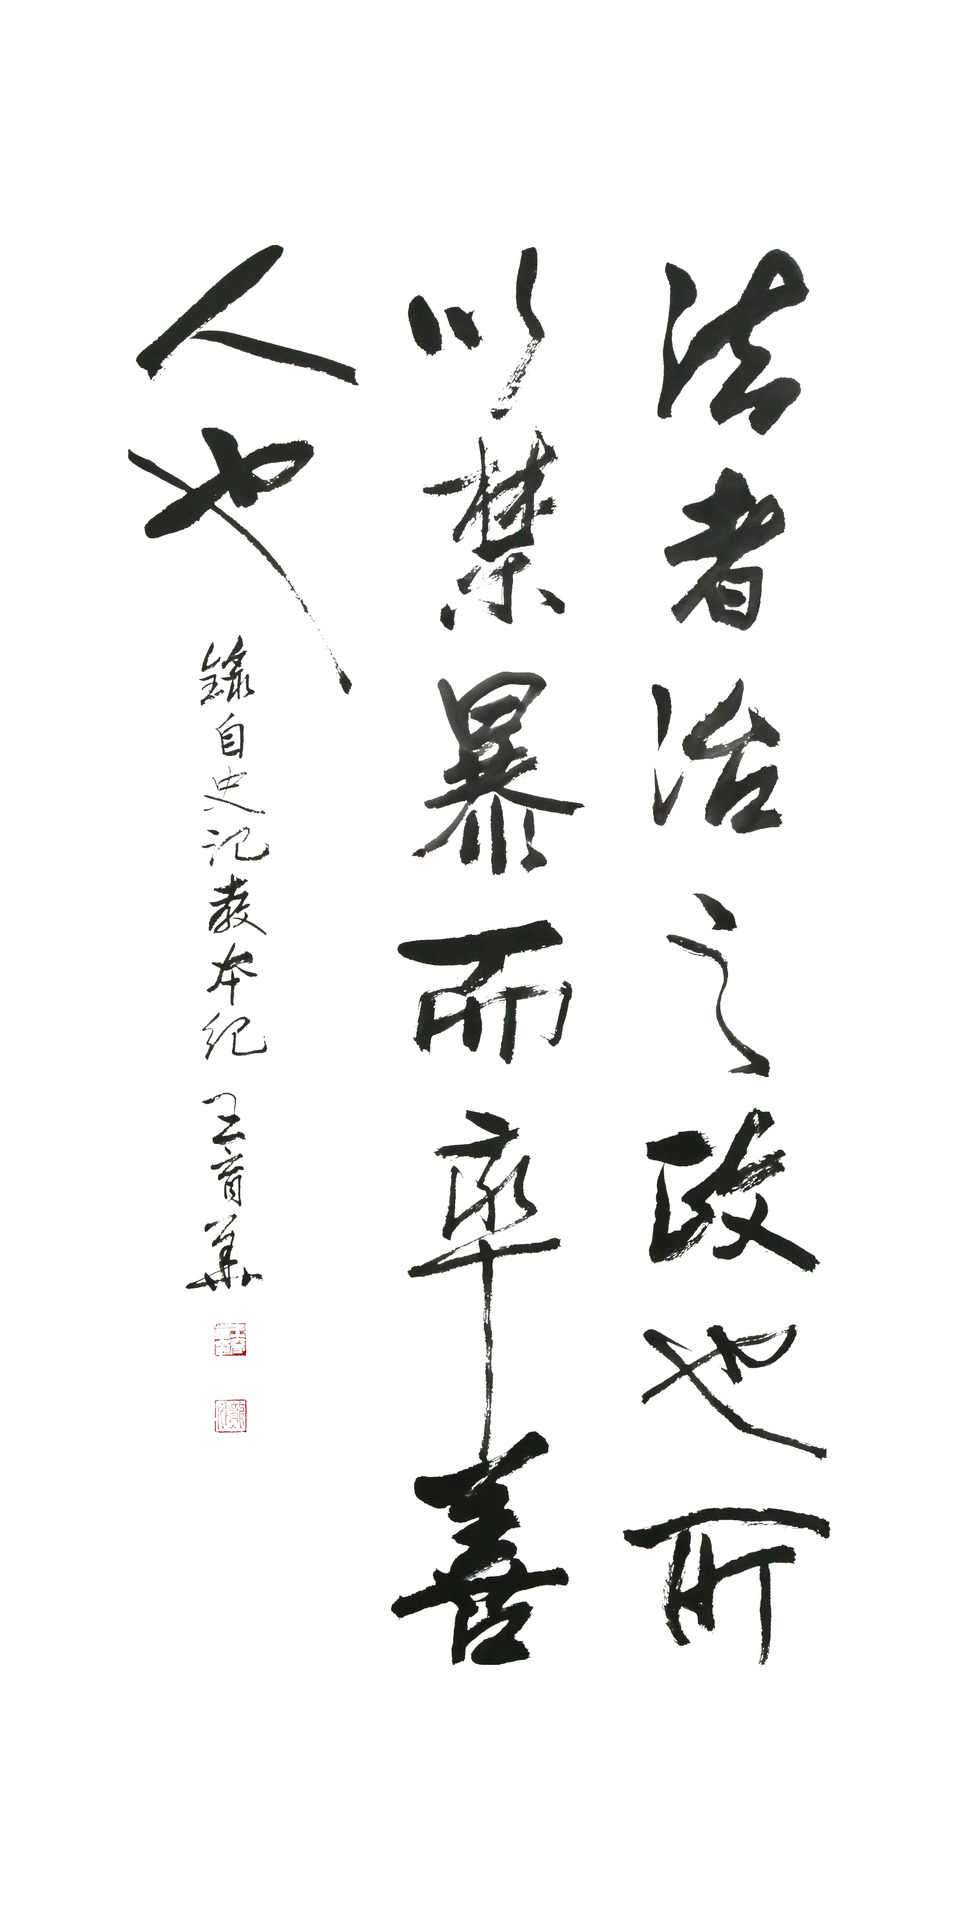 法者治之政也所
以禁暴而率善
人也
錄自史記孝本紀
王育華